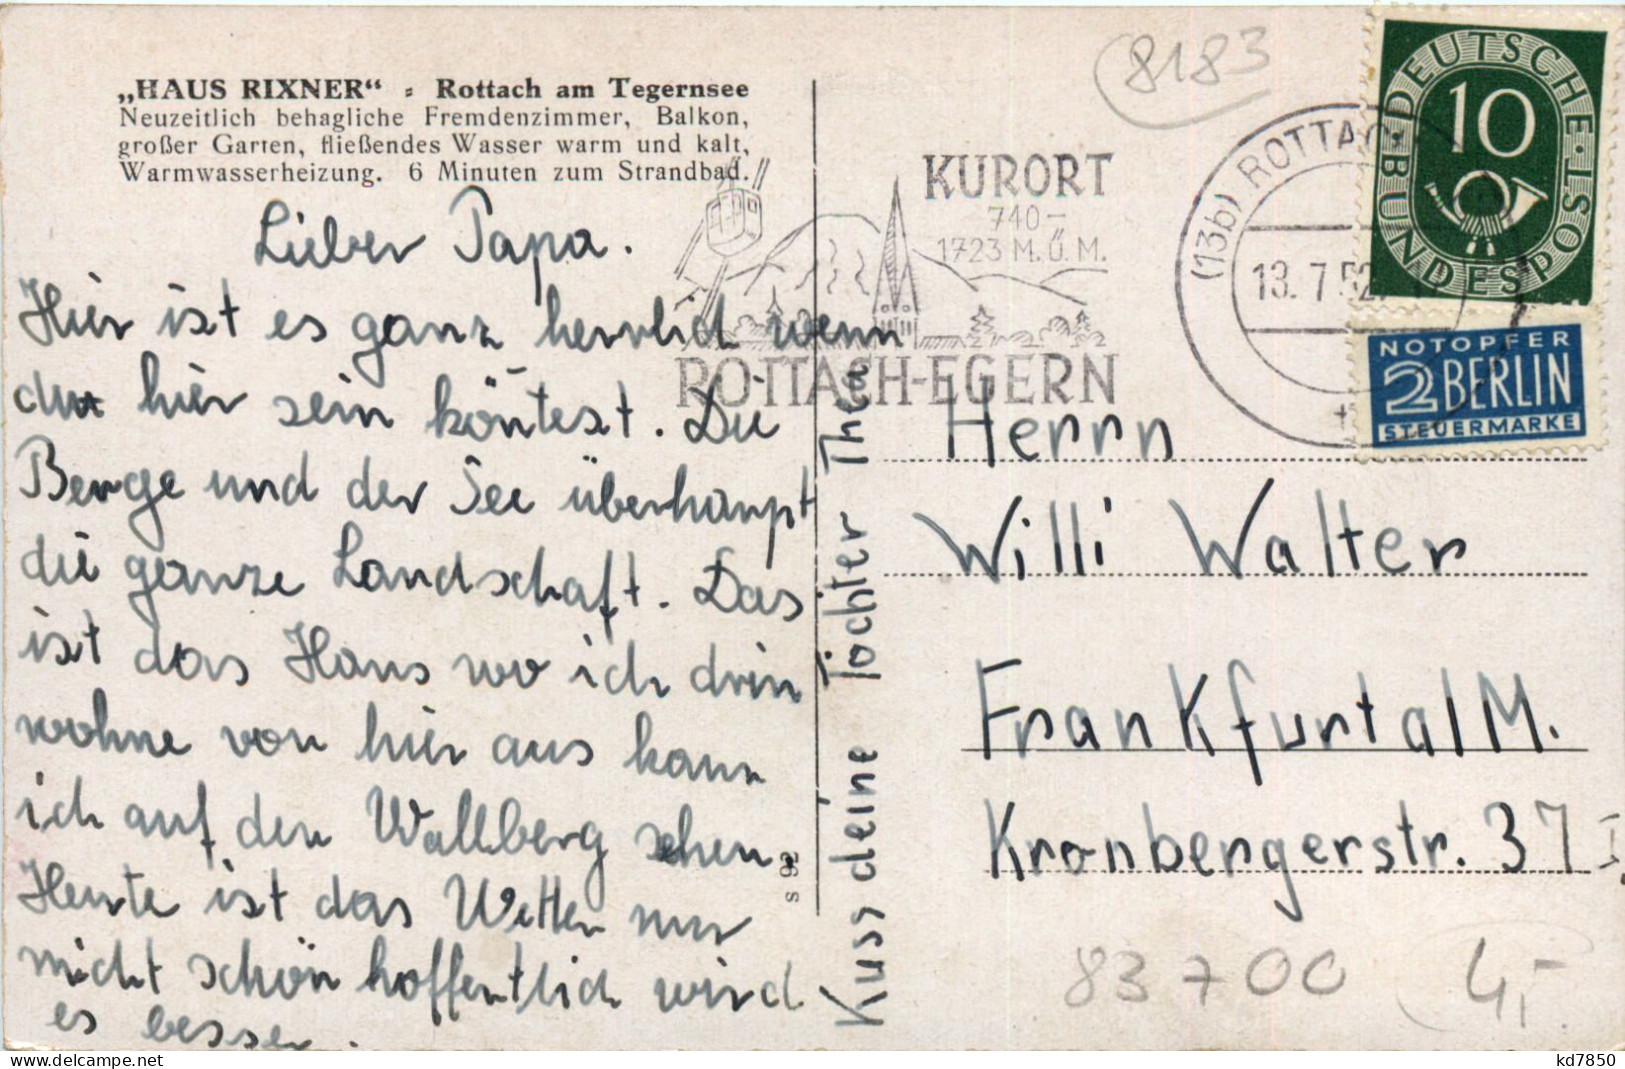 „HAUS RIXNER“ - Rottach am Tegernsee
Neuzeitlich behagliche Fremdenzimmer, Balkon,
großer Garten, fließendes Wasser warm und kalt,
Warmwasserheizung. 6 Minuten zum Strandbad.
Lieber Papa.
Hier ist es ganz herrlich wenn
du hier sein köntest. Die
Berge und der See überhaupt
die ganze Landschaft. Das
ist das Haus wo ich drin
wohne von hier aus kann
ich auf den Wallberg sehen.
Heute ist das Wetter nur
nicht schön hoffentlich wird
es besser.
Kuss deine Töchter Thea
s 92
8183
KURORT
740-
1723 M.Ü.M.
ROTTACH-EGERN
(13b) ROTTACH
13.7.52
DEUTSCHE BUNDESPOST
10
NOTOPFER
2 BERLIN
STEUERMARKE
Herrn
Willi Walter
Frankfurt a/M.
Kronbergerstr. 37 I
83700
4,-
kd7850